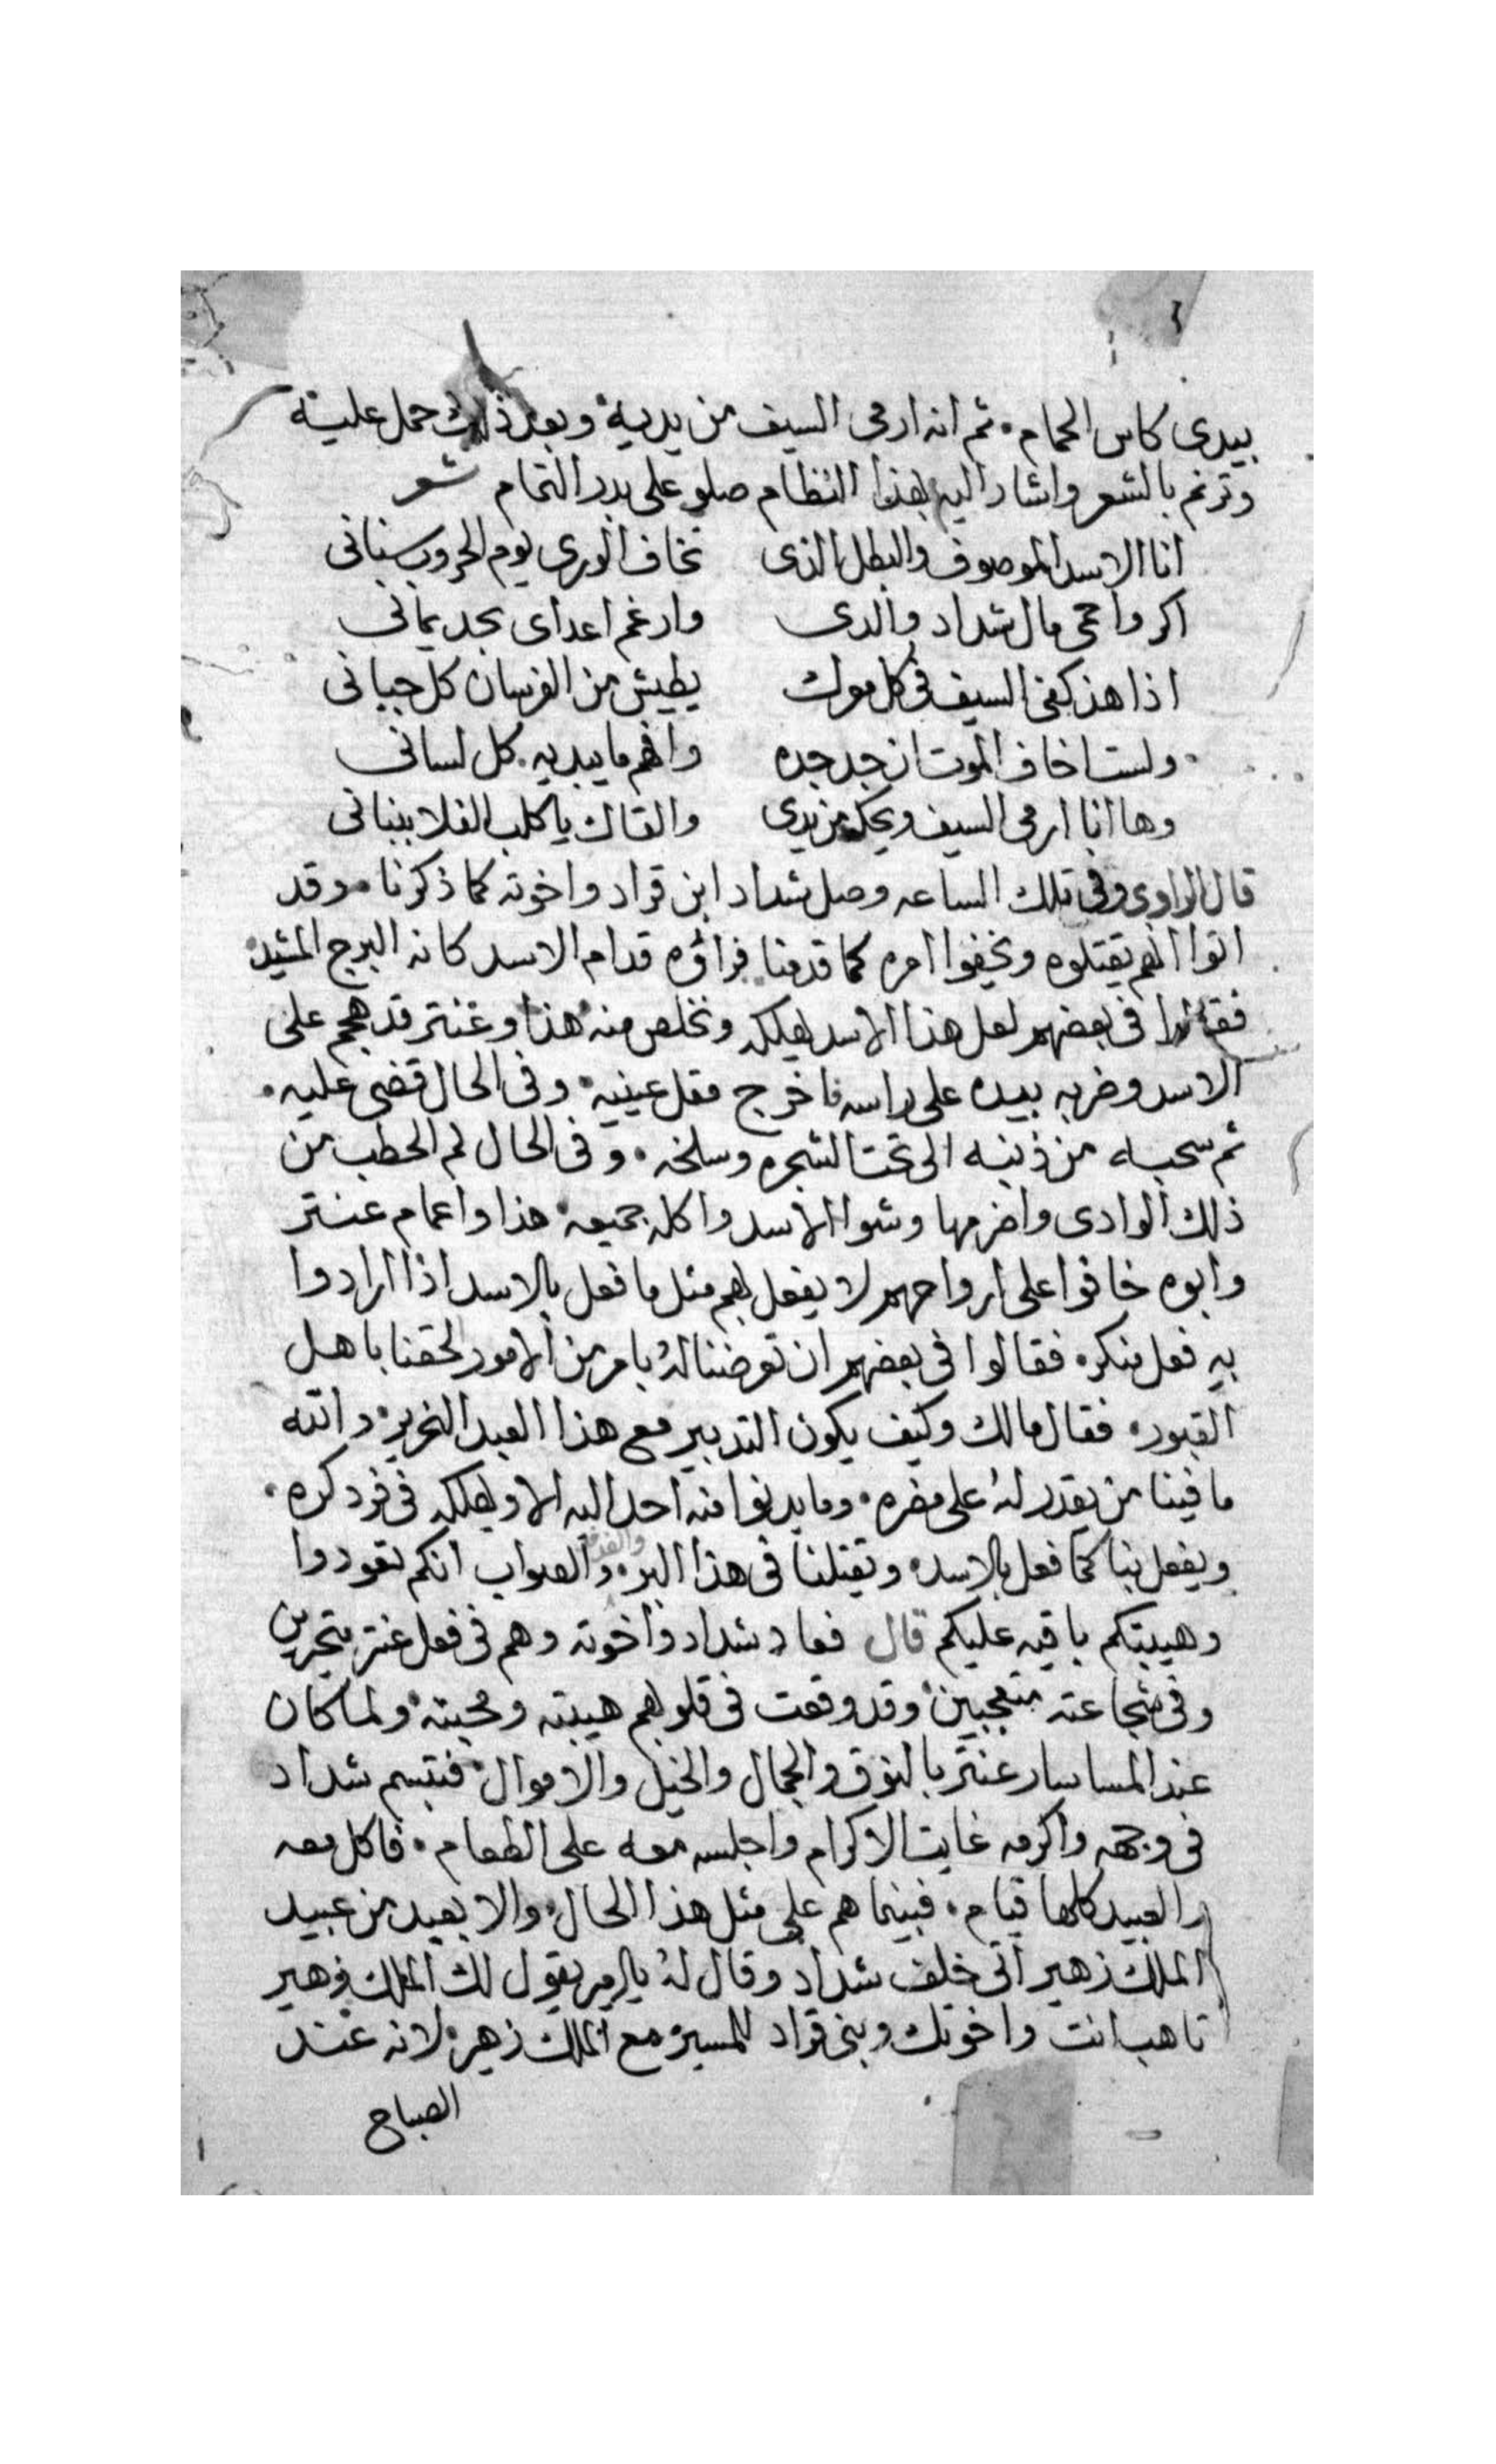 بيدى كاس الحمام • ثم انه ارمى السيف من يديه • وبعد ذلك حمل عليه
وترنم بالشعر واشار اليه بهذا النظام صلو على بدر التمام شعر
انا الاسد الموصوف والبطل الذى تخاف الورى يوم الحروب سنانى
اكر واحمى مال شداد والدى وارغم اعداى بحد يمانى
اذا هز كفى السيف فى كل مولك يطيش من الفرسان كل جبانى
• ولست اخاف الموت ان جد جده وافهم ما يبديه كل لسانى
وها انا ارمى السيف ويحك من يدى والقاك يا كلب الفلا ببنانى
قال الراوى وفى تلك الساعه وصل شداد ابن قراد واخوته كما ذكرنا • وقد
اتوا انهم يقتلوه ويخفوا امره كما قدمنا فراؤه قدام الاسد كانه البرج المشيد •
فقالوا فى بعضهم لعل هذا الاسد يهلكه ونخلص منه • هذا وعنتر قد هجم على
الاسد وضربه بيده على راسه فاخرج مقل عينيه • وفى الحال قضى عليه •
ثم سحبه من ذنبه الى تحت الشجره وسلخه • وفى الحال لم الحطب من
ذلك الوادى واضرمها وشوا الاسد واكله جميعه • هذا واعمام عنتر
وابوه خافوا على ارواحهم لا يفعل بهم مثل ما فعل بالاسد اذا ارادوا
به فعل منكره فقالوا فى بعضهم ان تعرضنا له بامر من الامور لحقنا باهل
القبور • فقال مالك وكيف يكون التدبير مع هذا العبد النحرير • والله
ما فينا من يقدر له على مضره • وما يدنوا منه احد اليه الا ويهلكه فى فرد كره •
ويفعل بنا كما فعل بالاسد • ويقتلنا فى هذا البر • والصواب انكم تعودوا
وهيبتكم باقيه عليكم قال فعاد شداد واخوته وهم فى فعل عنتر متحيرين
وفى شجاعته متعجبين • وقد وقعت فى قلوبهم هيبته ومحبته • ولما كان
عند المسا سار عنتر بالنوق والجمال والخيل والاموال • فتبسم شداد
فى وجهه واكرمه غايت الاكرام واجلسه معه على الطعام • فاكل معه
والعبيد كلها قيام • فبينما هم على مثل هذا الحال • والا بعبد من عبيد
الملك زهير اتى خلف شداد وقال له يا امير يقول لك الملك زهير
تاهب انت واخوتك وبنى قراد للمسير مع الملك زهير • لانه عند
الصباح